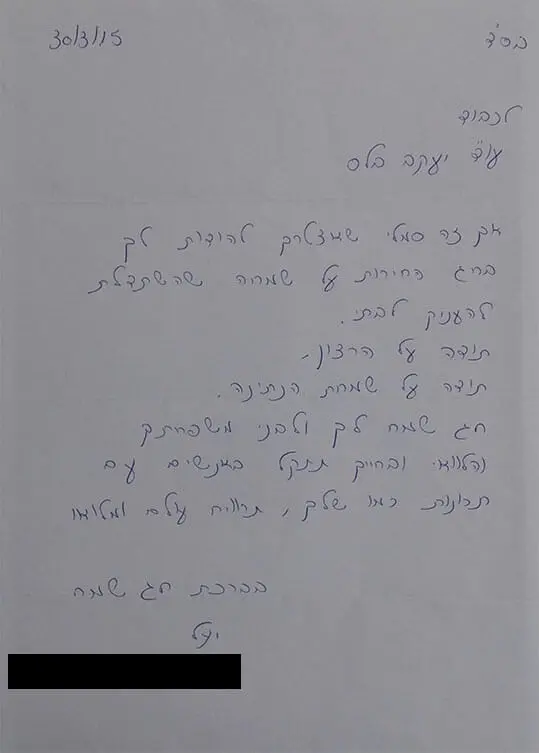 בס"ד
30/3/15
לכבוד
עו"ד יעקב בלס
אך זה סמלי שאצטרך להודות לך
בחג החירות על שמחה שהשתדלת
להעניק לבתי.
תודה על הרצון,
תודה על שמחת הנתינה.
חג שמח לך ולבני משפחתך
והלוואי ובחיים תתקל באנשים עם
תכונות כמו שלך, תרוויח עולם ומלואו
בברכת חג שמח
יעל